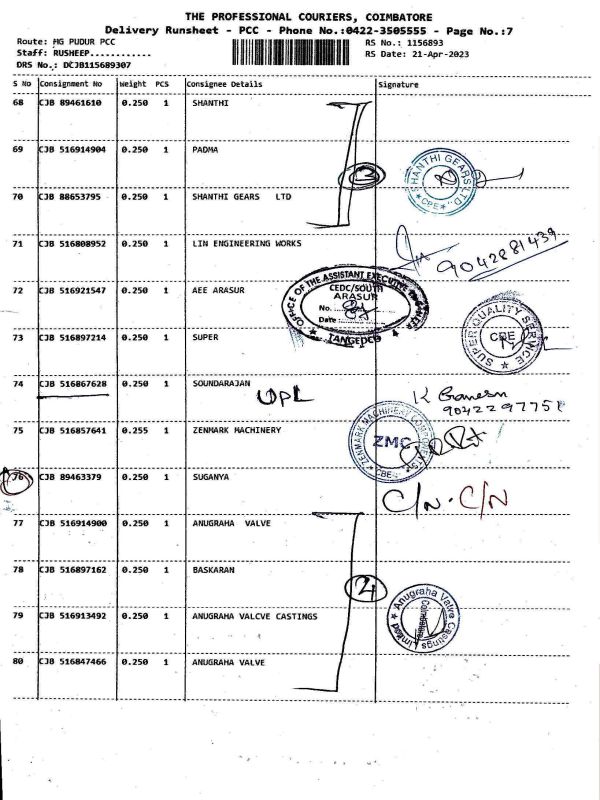 THE PROFESSIONAL COURIERS, COIMBATORE
Delivery Runsheet - PCC - Phone No.:0422-3505555 - Page No.:7
Route: MG PUDUR PCC
RS No.: 1156893
Staff: RUSHEEP............
RS Date: 21-Apr-2023
DRS No.: DCJB115689307
S No Consignment No Weight PCS Consignee Details Signature
68 CJB 89461610 0.250 1 SHANTHI
69 CJB 516914904 0.250 1 PADMA
3
SHANTHI GEARS LTD. CBE
70 CJB 88653795 0.250 1 SHANTHI GEARS LTD
71 CJB 516808952 0.250 1 LIN ENGINEERING WORKS
9042881439
72 CJB 516921547 0.250 1 AEE ARASUR
OFFICE OF THE ASSISTANT EXECUTIVE
CEDC/SOUTH
ARASUR
No.
Date
TANGEDCO
73 CJB 516897214 0.250 1 SUPER
SUPER QUALITY SERVICE
CBE
74 CJB 516867628 0.250 1 SOUNDARAJAN
UPL
K Ganesn
9042297751
75 CJB 516857641 0.255 1 ZENMARK MACHINERY
ZENMARK MACHINERY COMPONENTS
ZMC
CBE
76 CJB 89463379 0.250 1 SUGANYA
C/N. C/N
77 CJB 516914900 0.250 1 ANUGRAHA VALVE
78 CJB 516897162 0.250 1 BASKARAN
4
Anugraha Valve Castings Limited
Coimbatore
79 CJB 516913492 0.250 1 ANUGRAHA VALCVE CASTINGS
80 CJB 516847466 0.250 1 ANUGRAHA VALVE